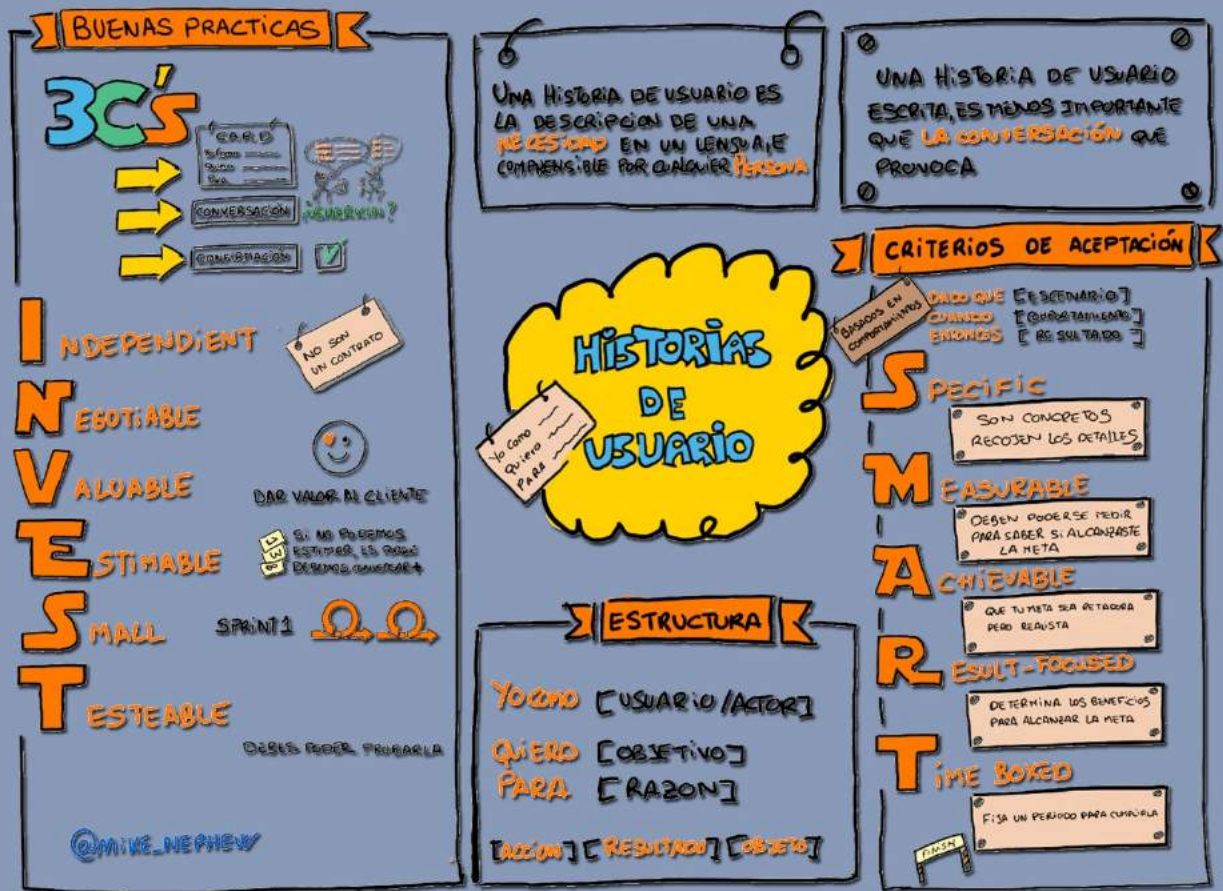 BUENAS PRACTICAS
3C'S
CARD
CONVERSACIÓN
CONFIRMACIÓN
INDEPENDIENT
NO SON
UN CONTRATO
NEGOTIABLE
VALUABLE
DAR VALOR AL CLIENTE
ESTIMABLE
SI NO PODEMOS
ESTIMAR, ES
DEBEMOS
SMALL
SPRINT 1
TESTEABLE
DEBES PODER PROBARLA
@MIKE_NEPHEW
UNA HISTORIA DE USUARIO ES
LA DESCRIPCION DE UNA
NECESIDAD EN UN LENGUAJE
COMPRENSIBLE POR CUALQUIER PERSONA
HISTORIAS
DE
USUARIO
YO COMO
QUIERO
PARA
ESTRUCTURA
YO COMO [USUARIO/ACTOR]
QUIERO [OBJETIVO]
PARA [RAZON]
[ACCION] [RESULTADO] [OBJETO]
UNA HISTORIA DE USUARIO
ESCRITA, ES MENOS IMPORTANTE
QUE LA CONVERSACIÓN QUE
PROVOCA
CRITERIOS DE ACEPTACIÓN
BASADOS EN
COMPORTAMIENTOS
DADO QUE [ESCENARIO]
CUANDO [COMPORTAMIENTO]
ENTONCES [RESULTADO]
SPECIFIC
SON CONCRETOS
RECOJEN LOS DETALLES
MEASURABLE
DEBEN PODERSE MEDIR
PARA SABER SI ALCANZASTE
LA META
ACHIEVABLE
QUE TU META SEA RETADORA
PERO REALISTA
RESULT-FOCUSED
DETERMINA LOS BENEFICIOS
PARA ALCANZAR LA META
TIME BOXED
FIJA UN PERIODO PARA CUMPLIRLA
FINISH